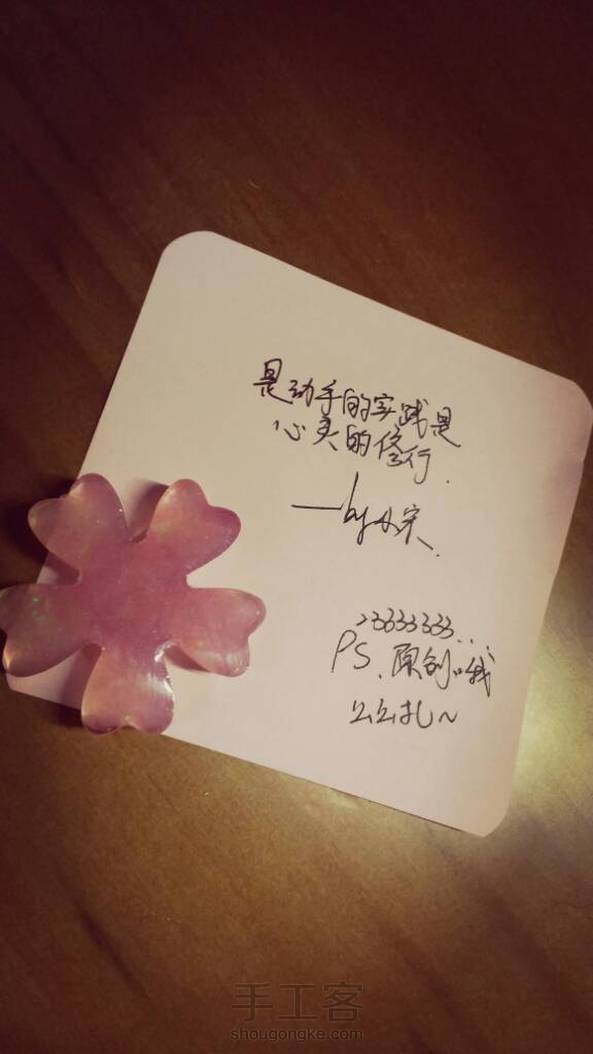 是动手的实践是
心灵的修行.
——by
23333333...
PS.原创哦
么么扎~
手工客
shougongke.com